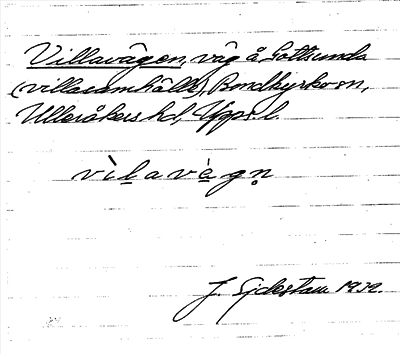 Villavägen, väg å Gottsunda
(villasamhälle), Bondkyrko sn,
Ulleråkers hd, Uppsl.
vìlavägṇ
J. Sjdestam 1939.